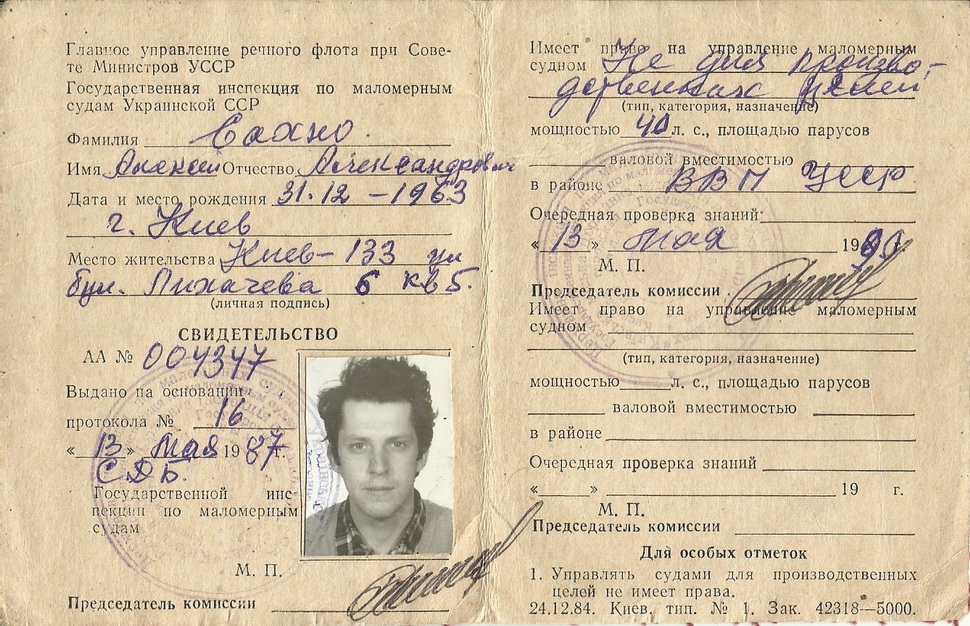 Главное управление речного флота при Сове-
те Министров УССР
Государственная инспекция по маломерным
судам Украинской ССР
Фамилия Сахно.
Имя Алексей Отчество Александрович
Дата и место рождения 31.12 – 1963
г. Киев
Место жительства Киев – 133 ул
бул. Лихачева 6 кв 5.
(личная подпись)
СВИДЕТЕЛЬСТВО
АА № 004347
Выдано на основании
протокола № 16
« 13 » мая 19 87 г.
СДБ.
Государственной инс-
пекции по маломерным
судам
М. П.
Председатель комиссии
Имеет право на управление маломерным
судном Не для произво-
дственных целей
(тип, категория, назначение)
мощностью 40 л. с., площадью парусов
валовой вместимостью
в районе ВВП УССР
Очередная проверка знаний
« 13 » мая 1990
М. П.
Председатель комиссии
Имеет право на управление маломерным
судном
(тип, категория, назначение)
мощностью л. с., площадью парусов
валовой вместимостью
в районе
Очередная проверка знаний
« » 19 г.
М. П.
Председатель комиссии
Для особых отметок
1. Управлять судами для производственных
целей не имеет права.
24.12.84. Киев, тип. № 1. Зак. 42318—5000.